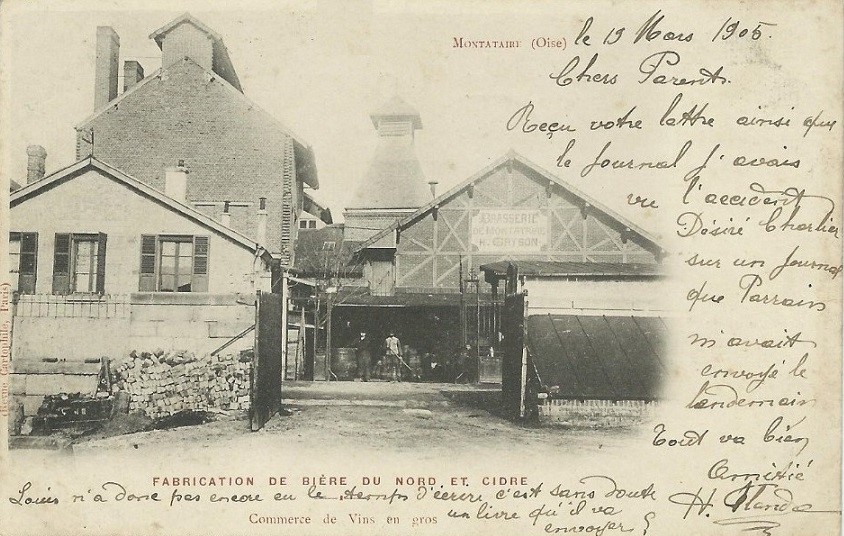 MONTATAIRE (Oise)
le 19 Mars 1905.
Chers Parents.
Reçu votre lettre ainsi que
le Journal j'avais
vu l'accident
Désiré Charlier
sur un Journal
que Parrain
m'avait
envoyé le
lendemain
Tout va bien
Amitié
H.
BRASSERIE
DE MONTATAIRE
Paris)
FABRICATION DE BIÈRE DU NORD ET CIDRE
Louis n'a donc pas encore eu le temps d'écrire c'est sans doute
Commerce de Vins en gros
un livre qu'il va
envoyer